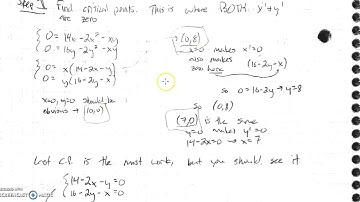 Step 1 Find critical points. This is where BOTH x'+y'
are zero
{ 0 = 14x - 2x² - xy
0 = 16y - 2y² - xy
{ 0 = x(14-2x-y)
0 = y(16-2y-x)
x=0, y=0 should be
obvious → (0,0)
(0,8)
x=0 makes x'=0
also makes
zero here
(16-2y-x)
so 0=16-2y → y=8
so (0,8)
(7,0) is the same
y=0 makes y'=0
14-2x=0 → x=7
Last C.P. is the most work, but you should see it
{ 14-2x-y=0
16-2y-x=0